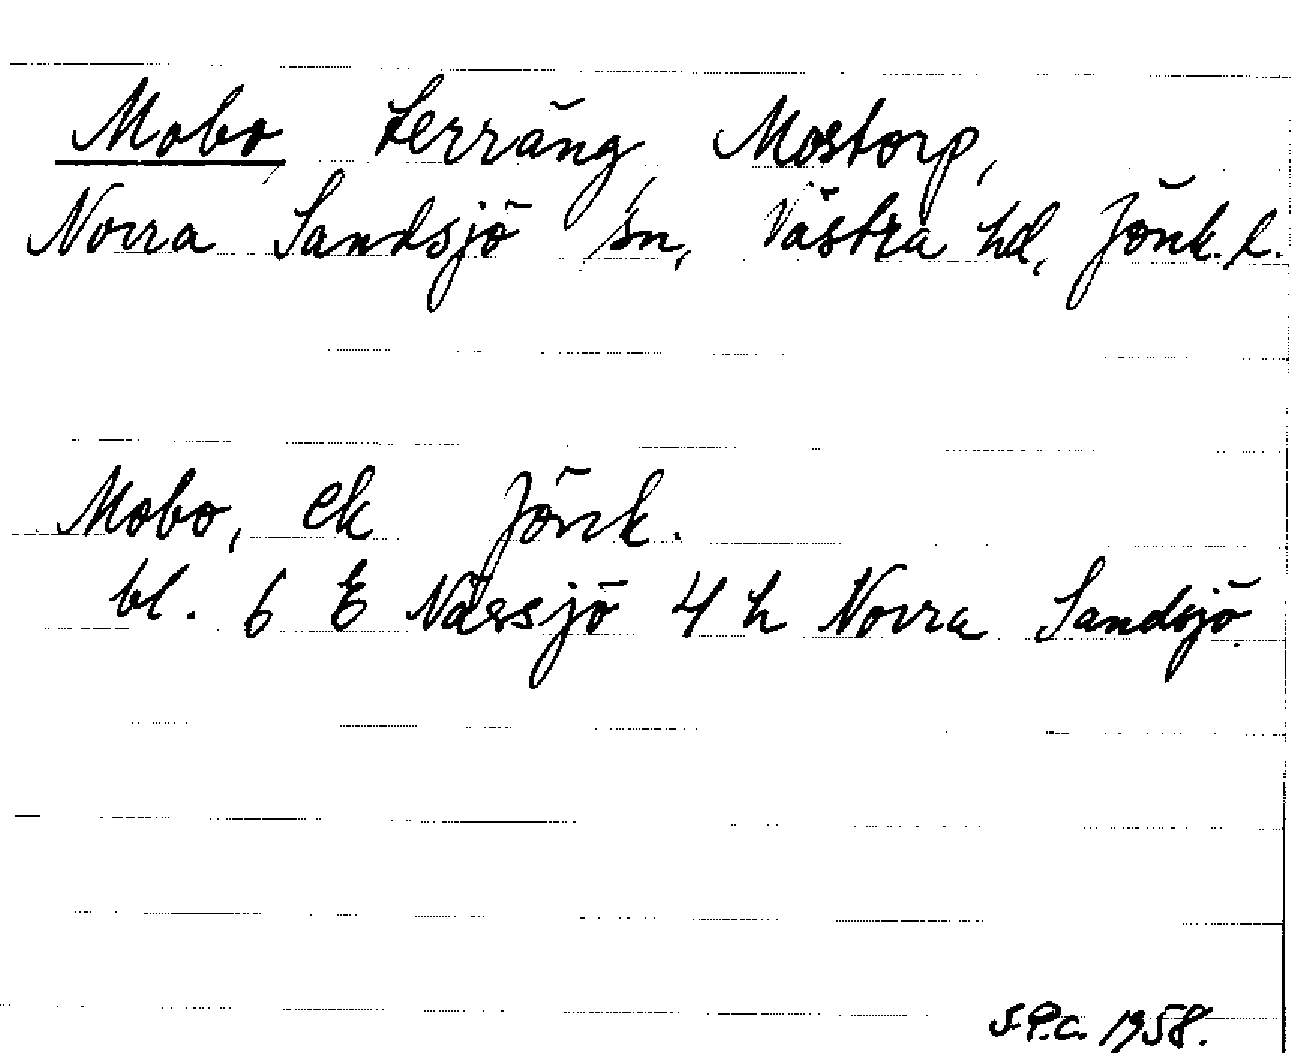 Mobo, terräng, Mostorp,
Norra Sandsjö sn, Västra hd, Jönk. l.
Mobo, ek Jönk.
bl. 6 E Nässjö 4 h Norra Sandsjö.
S.P.C. 1958.